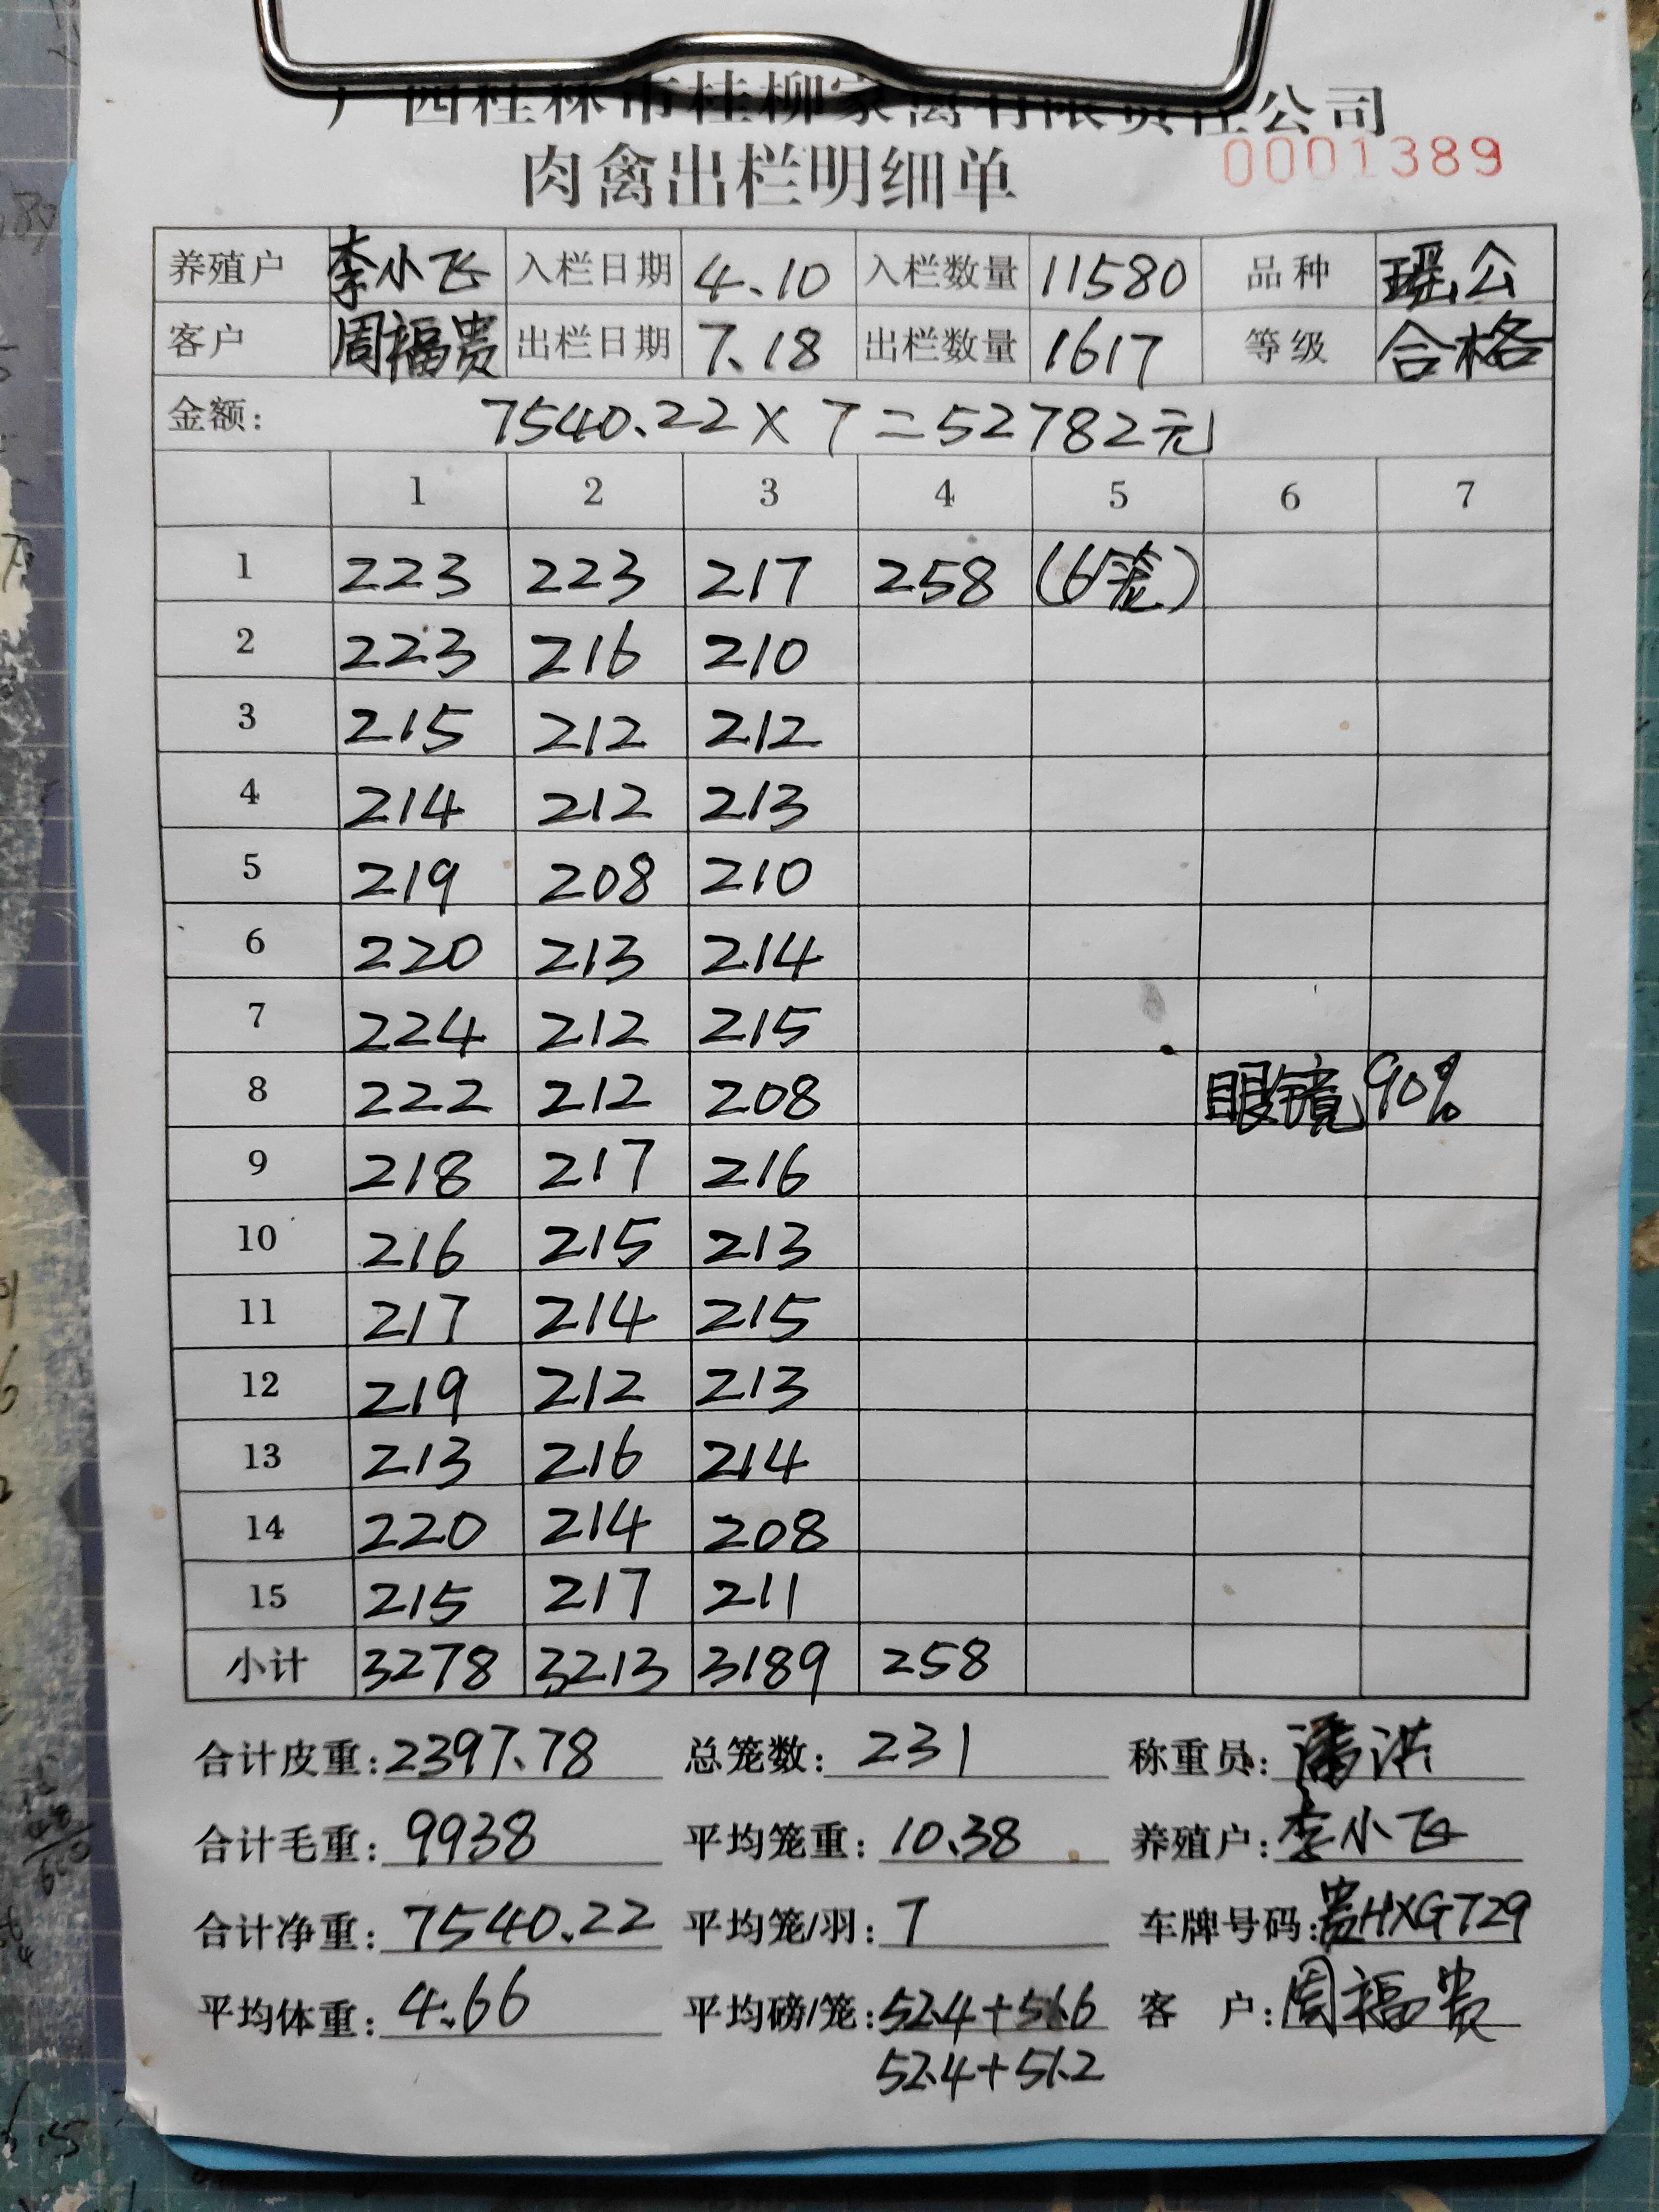 广西桂林市桂柳家禽有限责任公司
肉禽出栏明细单
0001389
养殖户 李小飞 入栏日期 4.10 入栏数量 11580 品种 瑶公
客户 周福贵 出栏日期 7.18 出栏数量 1617 等级 合格
金额: 7540.22×7=52782元
1 2 3 4 5 6 7
1 223 223 217 258 (6笼)
2 223 216 210
3 215 212 212
4 214 212 213
5 219 208 210
6 220 213 214
7 224 212 215
8 222 212 208 眼镜90%
9 218 217 216
10 216 215 213
11 217 214 215
12 219 212 213
13 213 216 214
14 220 214 208
15 215 217 211
小计 3278 3213 3189 258
合计皮重:2397.78 总笼数:231 称重员:潘洪
合计毛重:9938 平均笼重:10.38 养殖户:李小飞
合计净重:7540.22 平均笼/羽:7 车牌号码:贵HXG729
平均体重:4.66 平均磅/笼:52.4+51.6 客 户:周福贵
52.4+51.2